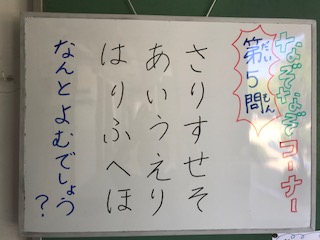 なぞなぞコーナー
第5問
だい もん
さりすせそ
あいうえり
はりふへほ
なんとよむでしょう?